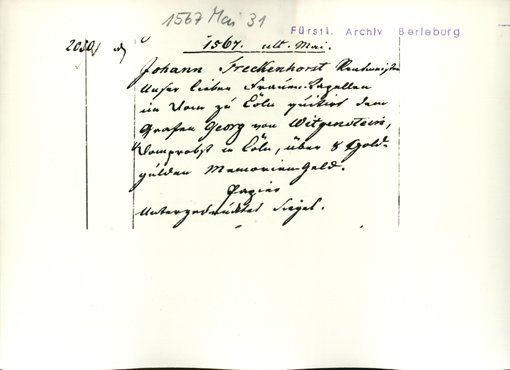 1567 Mai 31
Fürstl. Archiv Berleburg
1567. ult. Mai.
Johann Freckenhorst Rentmeister
Unser lieben Frauen-Capellen
im Dom zu Cöln quitirt dem
Grafen Georg von Witgenstein,
Domprobst in Cöln, über 8 Gold-
gülden Memorien-Geld.
Papier
Untergedrücktes Siegel.